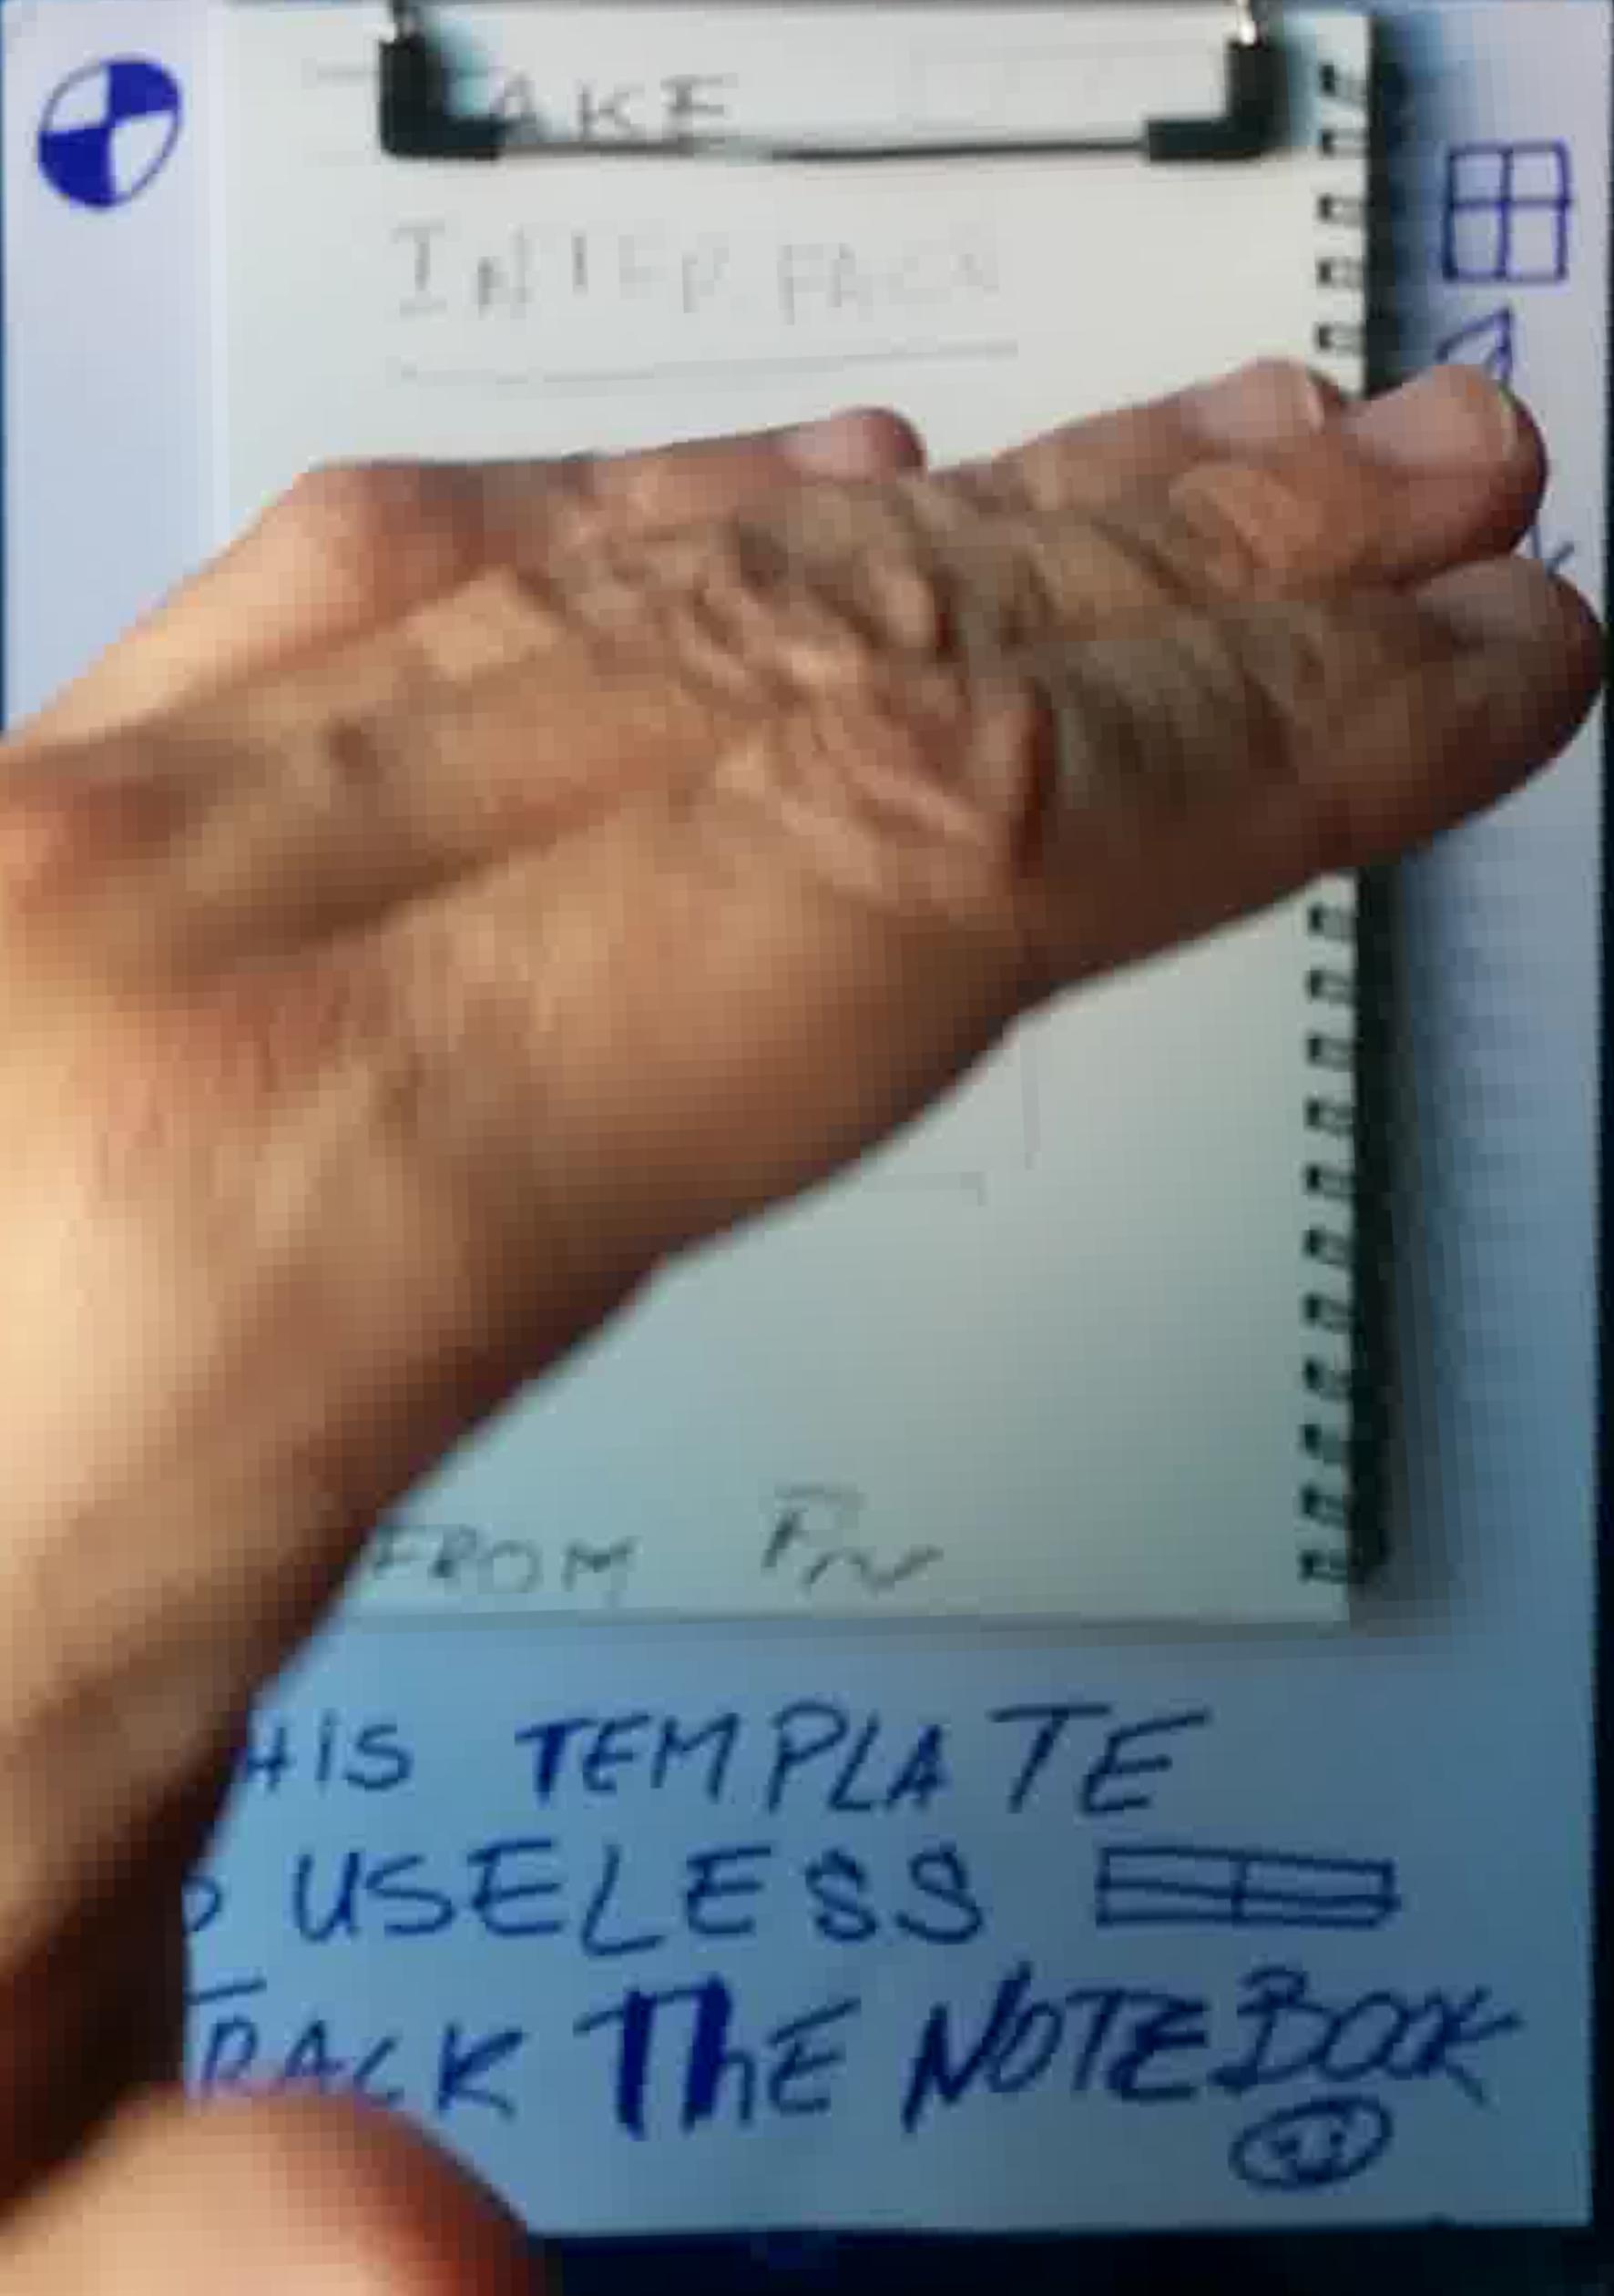 AKE
INTERFACE
FROM
HIS TEMPLATE
USELESS
TRACK THE NOTEBOOK